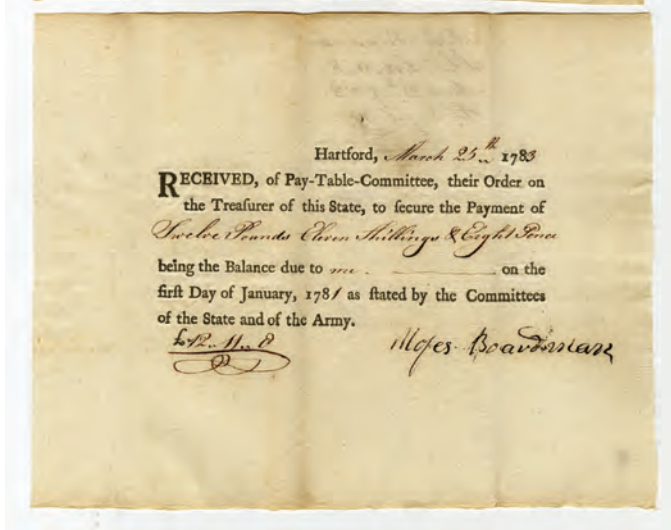 Hartford, March 25th 1783
RECEIVED, of Pay-Table-Committee, their Order on
the Treaſurer of this State, to ſecure the Payment of
Twelve Pounds Eleven Shillings & Eight Pence
being the Balance due to me. on the
firſt Day of January, 1781 as ſtated by the Committees
of the State and of the Army.
£12.. 11.. 8
Moſes Boardman